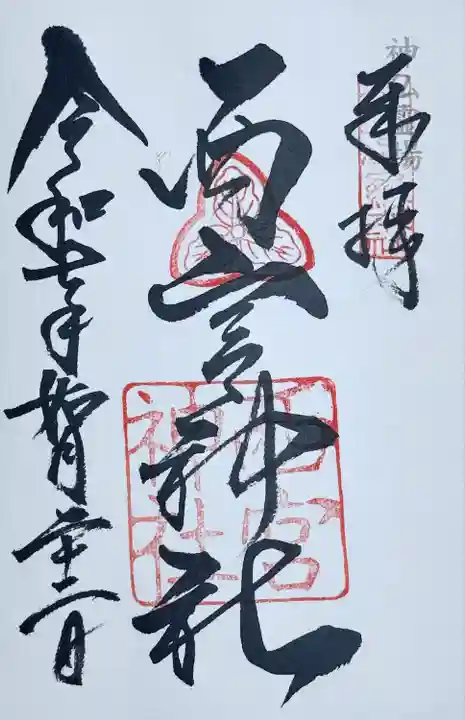 神仏霊場
奉拝
西宮神社
西宮
神社
令和七年拾月二十二日